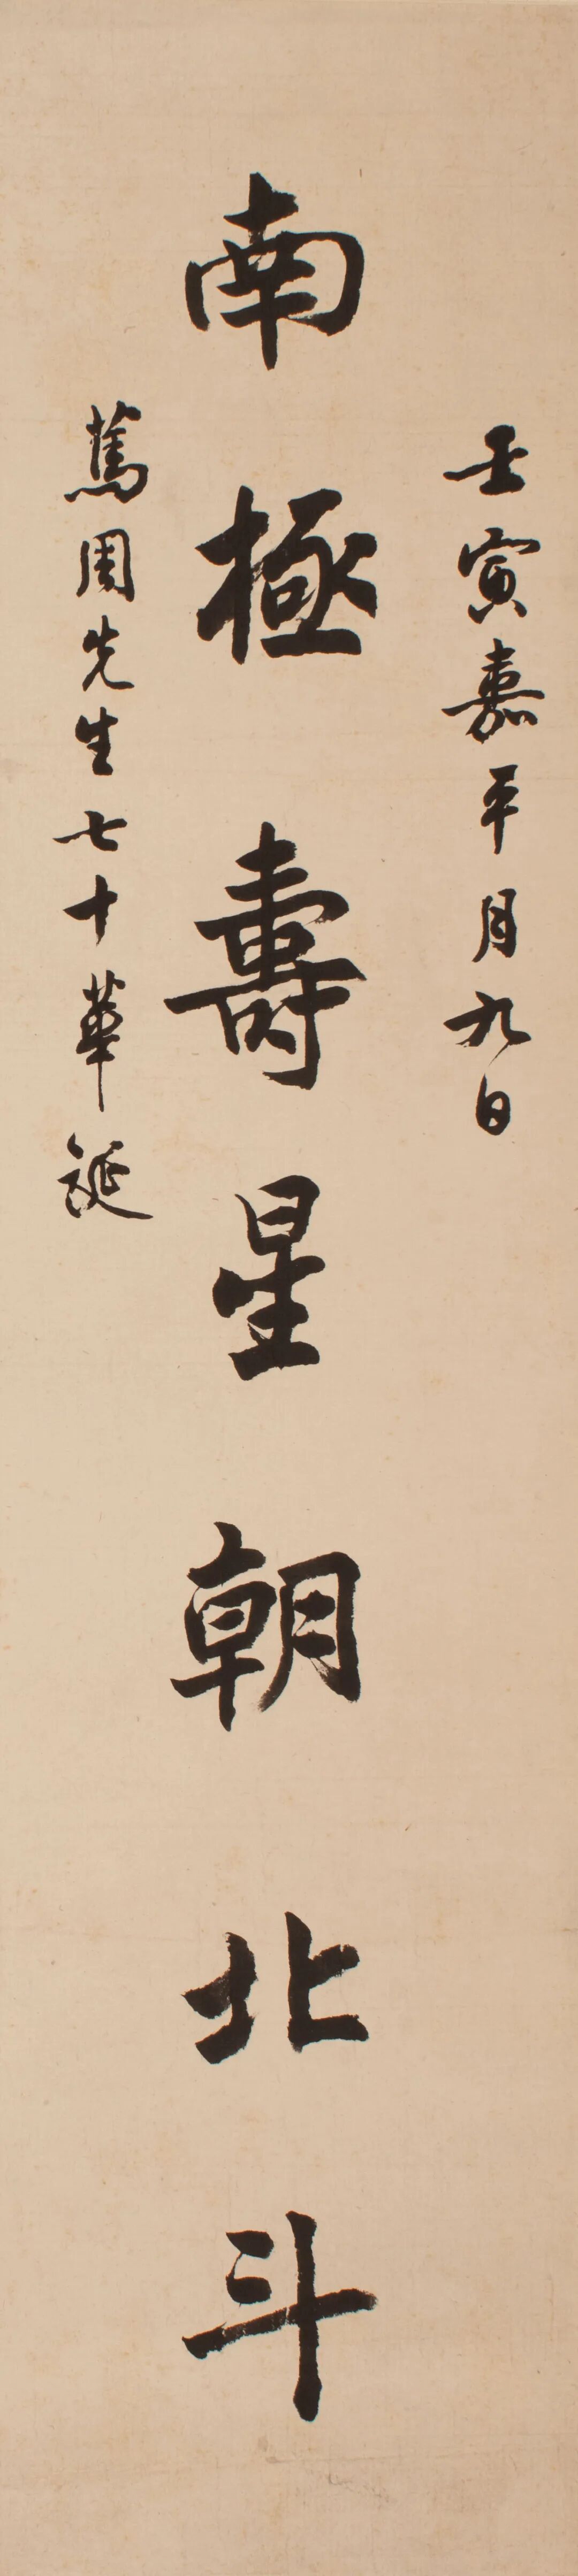 壬寅嘉平月九日
南極壽星朝北斗
篤周先生七十華誕